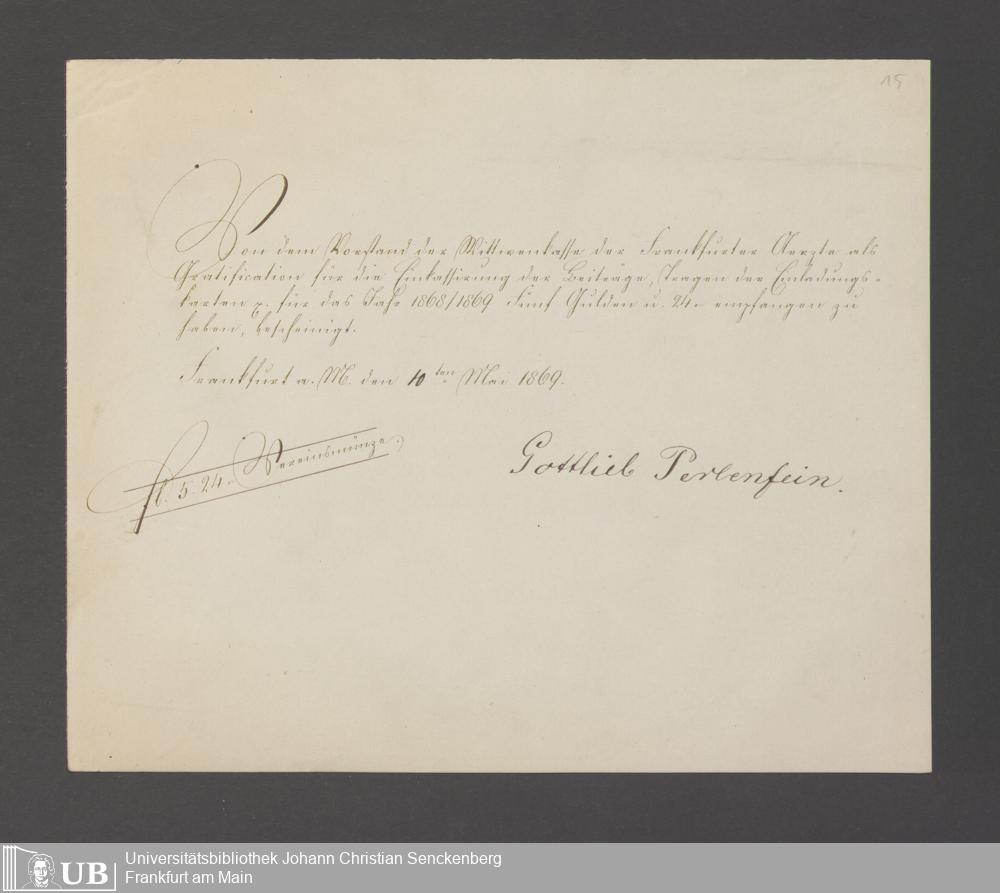 15
Von dem Vorstand der Wittwenkasse der Frankfurter Aerzte als
Gratification für die Einkassirung der Beiträge, Tragen der Einladungs-
karten p. für das Jahr 1868/1869 Fünf Gulden u. 24 empfangen zu
haben, bescheinigt.
Frankfurt a. M. den 10ten Mai 1869.
fl. 5.24. Vereinsmünze.
Gottlieb Perlenfein.
UB
Universitätsbibliothek Johann Christian Senckenberg
Frankfurt am Main